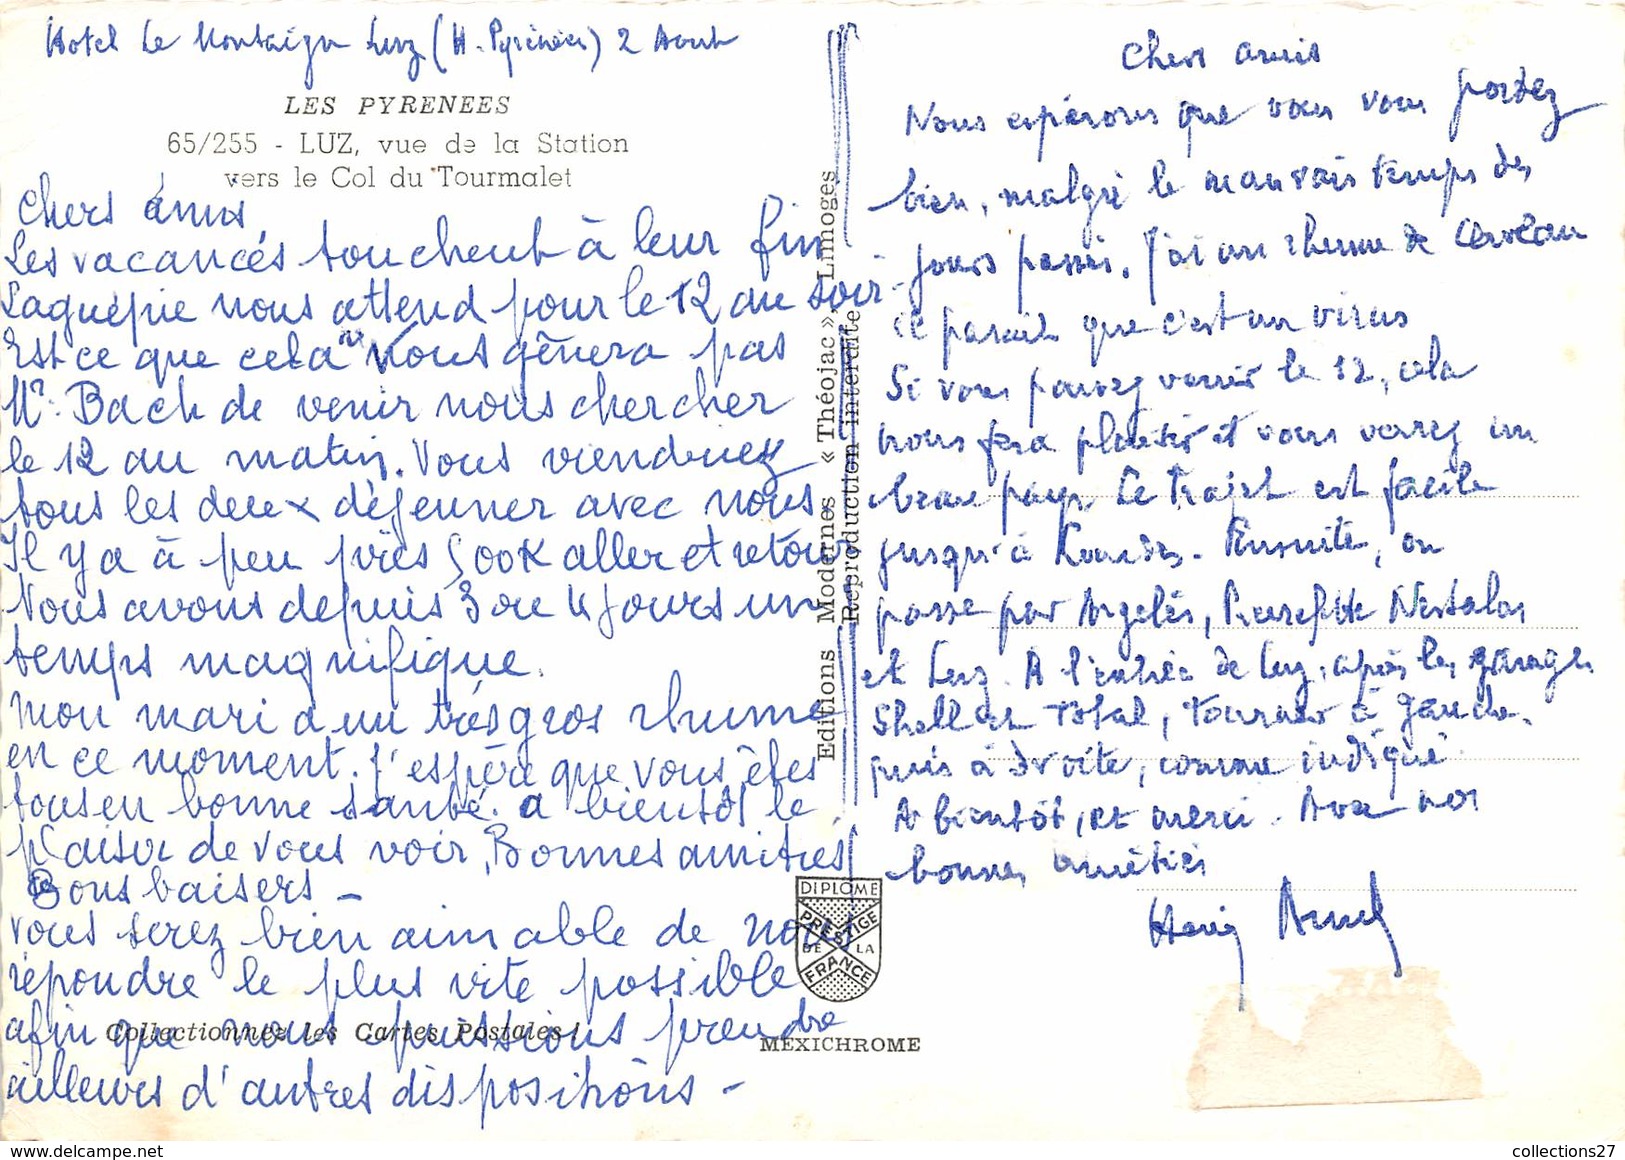 Hotel Le Montaigu Luz (H. Pyrénées) 2 Aout
LES PYRENEES
65/255 - LUZ, vue de la Station
vers le Col du Tourmalet
Chers amis
Les vacances touchent à leur fin
Laguépie nous attend pour le 12 au soir
Est ce que cela vous gênera pas
Mr. Bach de venir nous chercher
le 12 au matin. Vous viendriez
tous les deux déjeuner avec nous
Il y a à peu près 500K aller et retour
Nous avons depuis 3 ou 4 jours un
temps magnifique.
Mon mari a un très gros rhume
en ce moment. J'espère que vous êtes
tous en bonne santé. a bientôt le
plaisir de vous voir, Bonnes amitiés
Bons baisers -
vous serez bien aimable de nous
répondre le plus vite possible
afin que nous puissions prendre
ailleurs d'autres dispositions -
Collectionnez les Cartes Postales !
Editions Modernes « Théojac », Limoges
Reproduction interdite
DIPLOME
PRESTIGE
DE LA
FRANCE
MEXICHROME
Chers amis
Nous espérons que vous vous portez
bien, malgré le mauvais temps des
jours passés. J'ai un rhume de cerveau
il parait que c'est un virus
Si vous pouvez venir le 12, cela
nous fera plaisir et vous verrez un
beau pays. Le trajet est facile
jusqu'à Lourdes. Ensuite, on
passe par Argelès, Pierrefitte Nestalas
et Luz. A l'entrée de Luz, après les garages
Shell et Total, tourner à gauche.
puis à droite, comme indiqué
A bientôt, et merci. Avec nos
bonnes amitiés
collections27